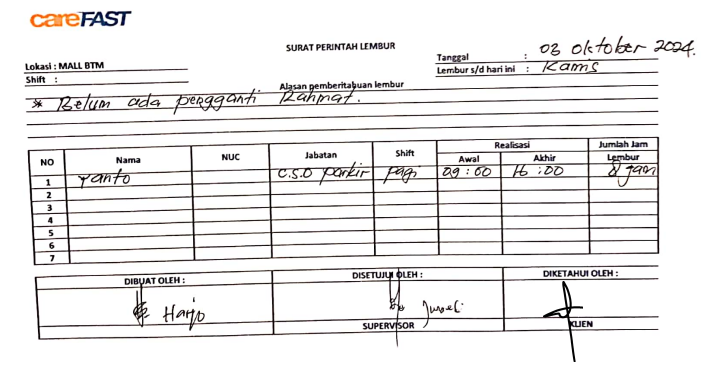 careFAST
SURAT PERINTAH LEMBUR
Lokasi : MALL BTM
Tanggal : 03 oktober 2024.
Shift :
Lembur s/d hari ini : Kamis
Alasan pemberitahuan lembur
* Belum ada pengganti Rahmat.
NO Nama NUC Jabatan Shift Realisasi Jumlah Jam
Awal Akhir Lembur
1 Yanto C.S.O parkir pagi 09 : 00 16 : 00 8 jam
2
3
4
5
6
7
DIBUAT OLEH : DISETUJUI OLEH : DIKETAHUI OLEH :
Harjo
SUPERVISOR KLIEN